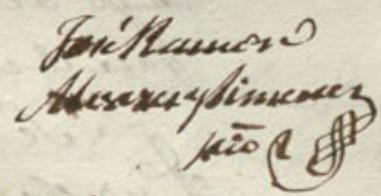 José Ramon
Alvarez y Simenez